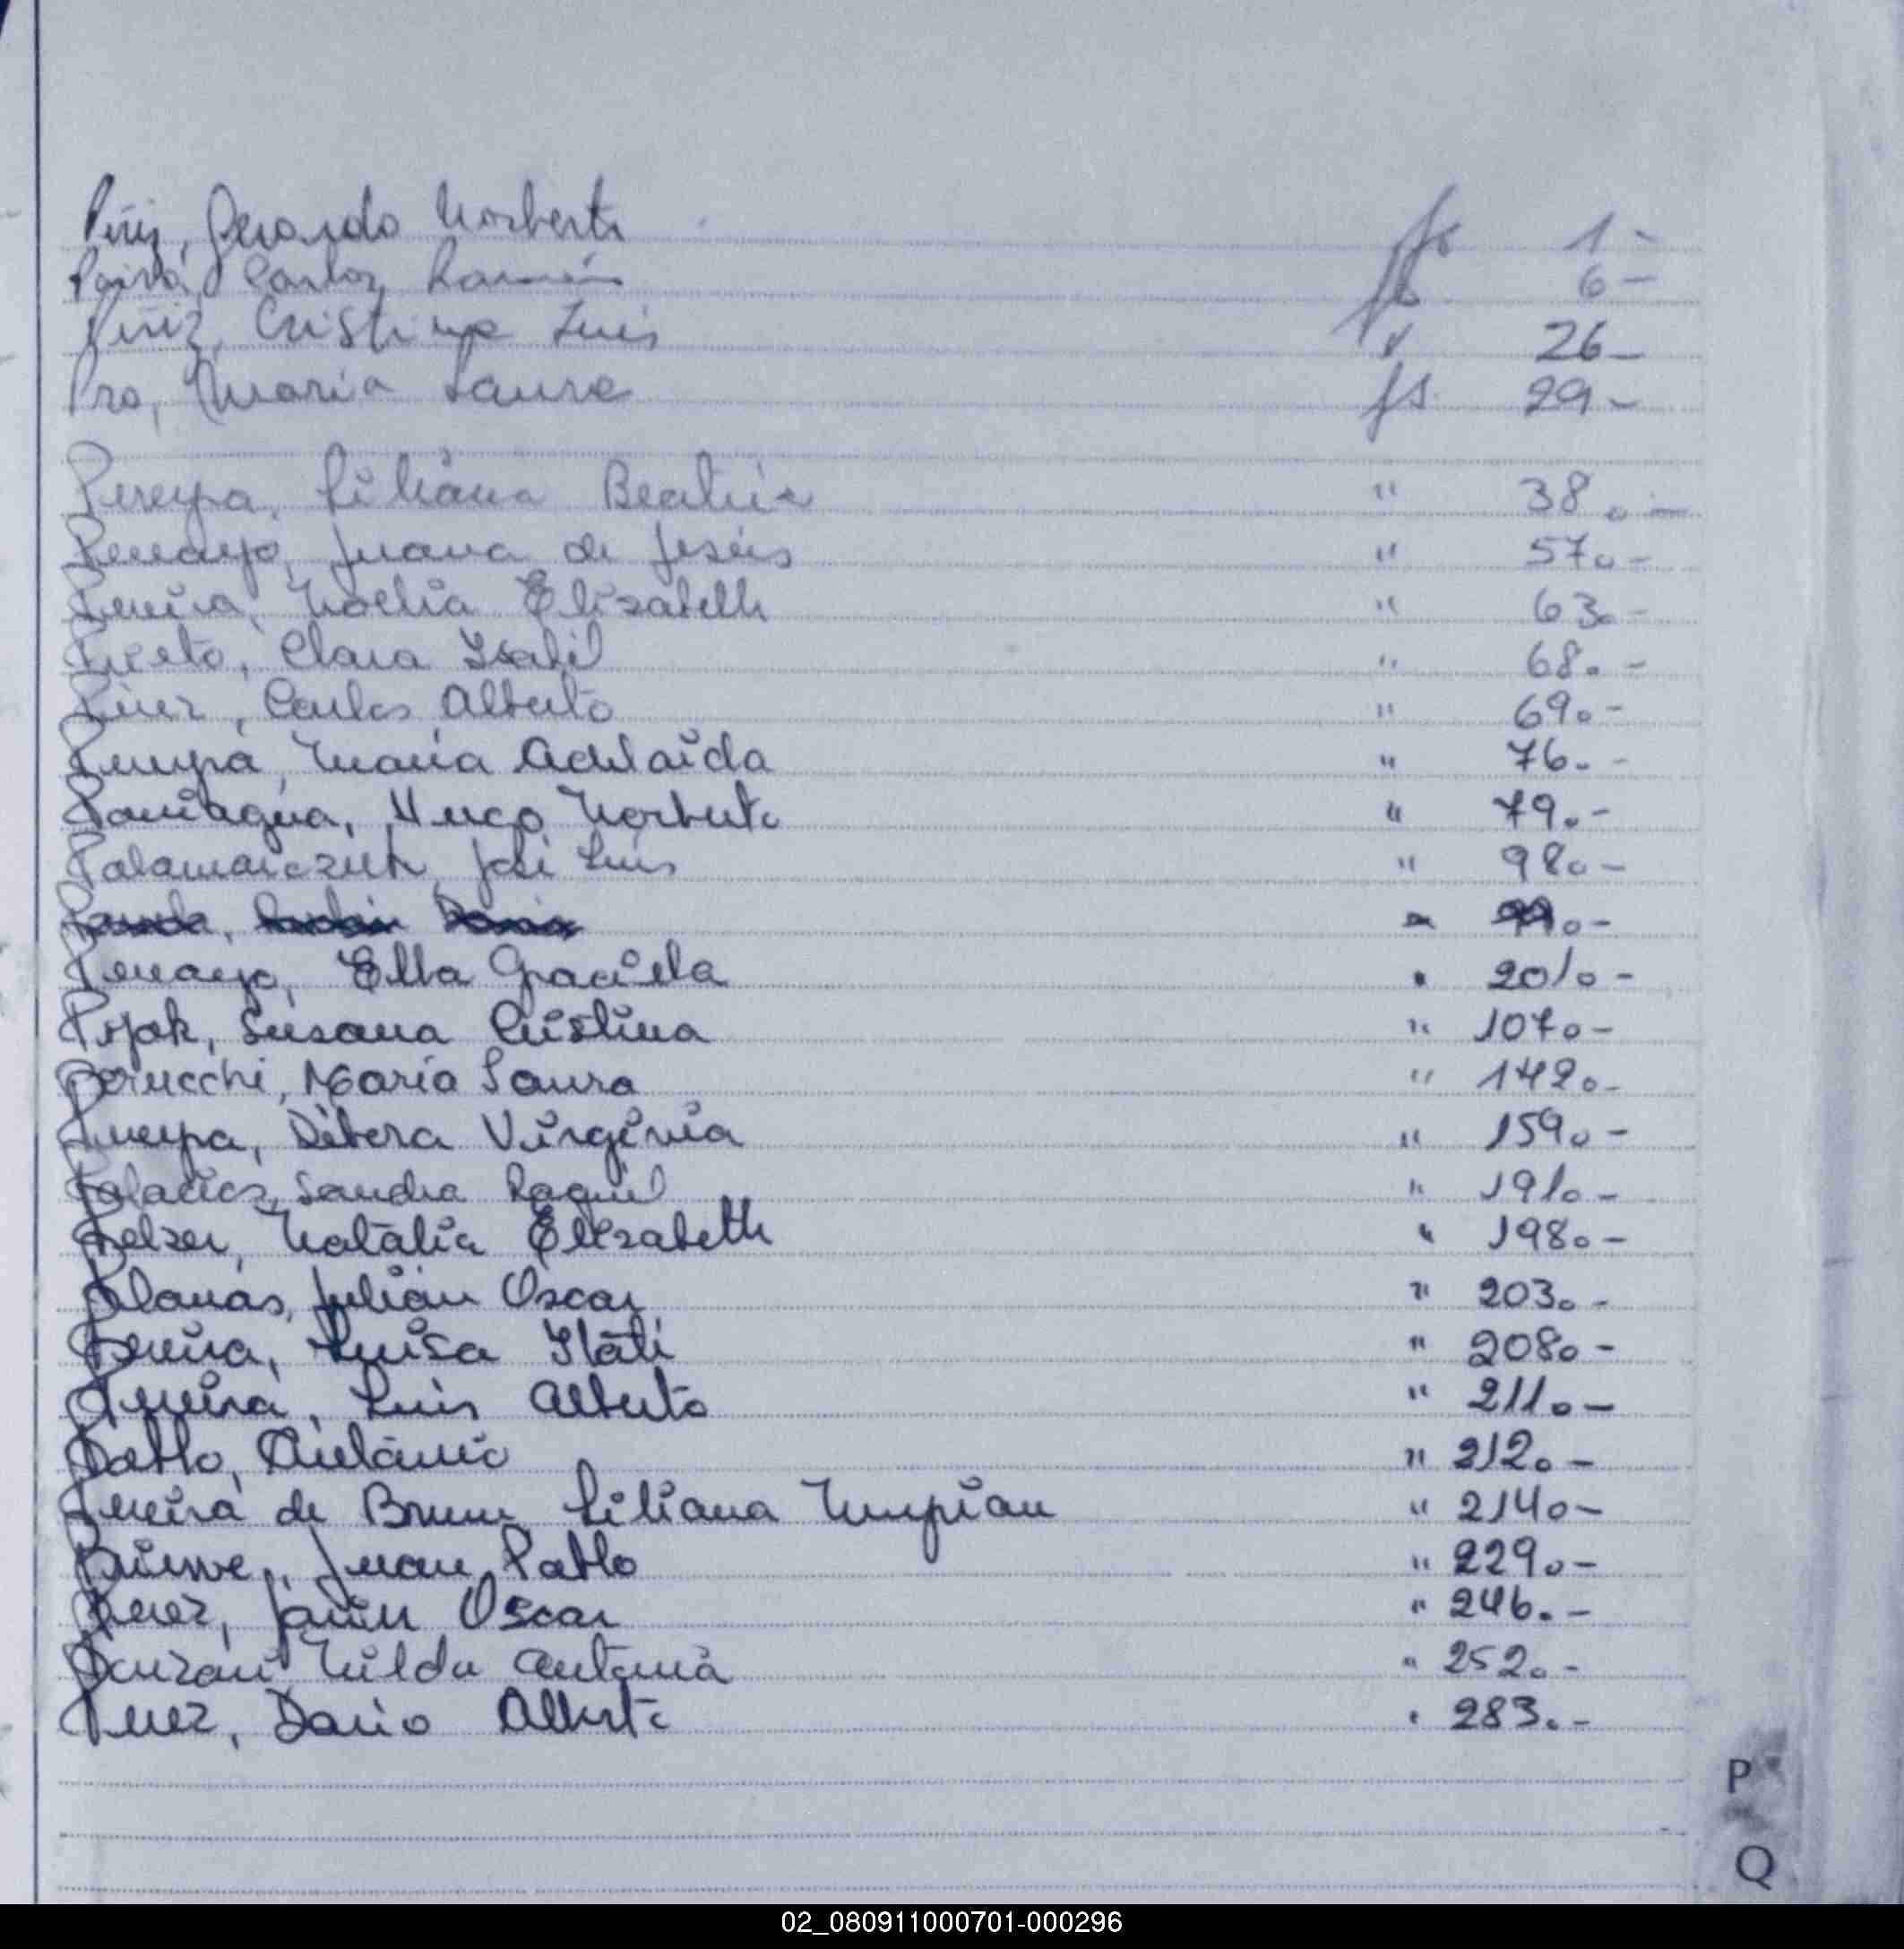 Piriz, Gerardo Norberto fs 1-
Paiva, Carlos Ramón fs 6-
Piriz, Cristina Luis " 26-
Pro, Maria Laura fs. 29-
Pereyra, Liliana Beatriz " 38.-
Penayo, Juana de Jesús " 57.-
Pereira, Noelia Elizabeth " 63.-
Prieto, Clara Isabel " 68.-
Pérez, Carlos Alberto " 69.-
Pereyra, María Adelaida " 76.-
Paniagua, Hugo Norberto " 79.-
Palamarczuk, José Luis " 98.-
Penayo, Elba Graciela " 201.-
Pojak, Susana Cristina " 107.-
Perucchi, Maria Laura " 142.-
Pereyra, Débora Virginia " 159.-
Palacios, Sandra Raquel " 191.-
Pelzer, Natalia Elizabeth " 198.-
Planas, Julián Oscar " 203.-
Pereira, Luisa Itatí " 208.-
Pereira, Luis Alberto " 211.-
Pablo, Antonio " 212.-
Pereira de Brum Liliana " 214.-
Juan Pablo " 229.-
Perez, Javier Oscar " 246.-
Nilda Antonia " 252.-
Perez, Dario Alberto " 283.-
P
Q
02_080911000701-000296